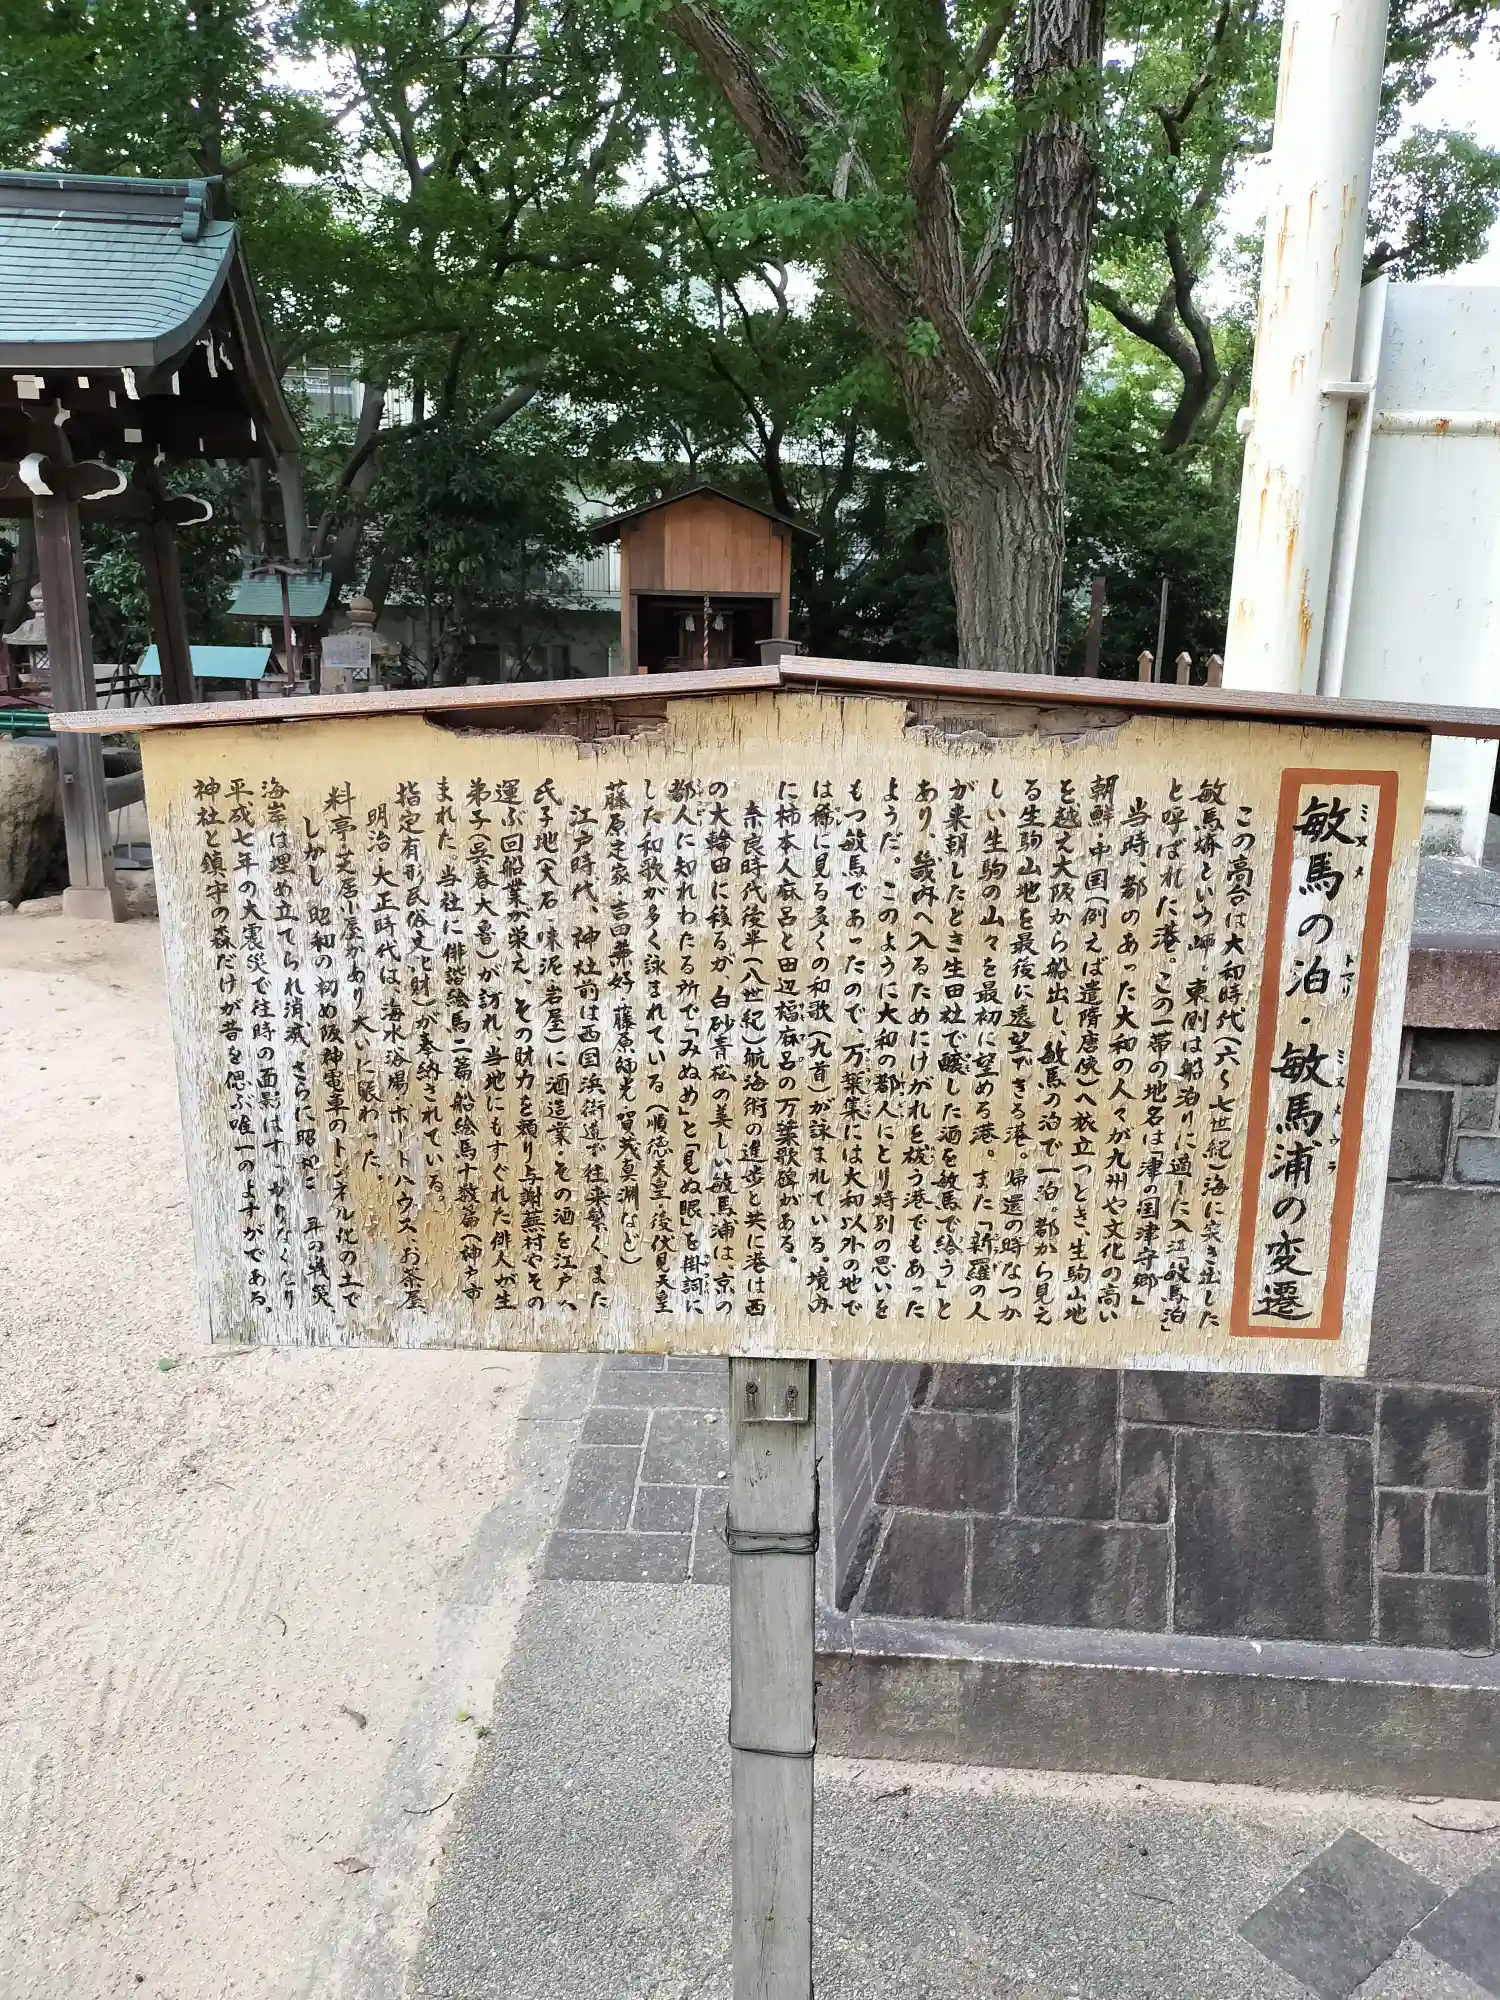 敏馬の泊・敏馬浦の変遷
ミヌメ
トマリ
ミヌメウラ
この高台は大和時代(六〜七世紀)海に突き出した
敏馬埼という岬。東側は船泊りに適した入江「敏馬泊」
と呼ばれた港。この一帯の地名は「津の国津守郷」
当時都のあった大和の人々が九州や文化の高い
朝鮮・中国(例えば遣隋唐使)へ旅立つとき、生駒山地
を越え大阪から船出し、敏馬の泊で一泊。都から見え
る生駒山地を最後に遠望できる港。帰還の時なつか
しい生駒の山々を最初に望める港。また「新羅の人
が来朝したとき生田社で醸した酒を敏馬で給う」と
あり、畿内へ入るためにけがれを祓う港でもあった
ようだ。このように大和の都人にとり特別の思いを
もつ敏馬であったので、万葉集には大和以外の地で
は稀に見る多くの和歌(九首)が詠まれている。境内
に柿本人麻呂と田辺福麻呂の万葉歌碑がある。
奈良時代後半(八世紀)航海術の進歩と共に港は西
の大輪田に移るが、白砂青松の美しい敏馬浦は、京の
都人に知れわたる所で「みぬめ」と「見ぬ眼」を掛詞に
した和歌が多く詠まれている(順徳天皇・後伏見天皇
藤原定家・吉田兼好・藤原師光・賀茂真淵など)
江戸時代、神社前は西国浜街道で往来繁く、また
氏子地(大石・味泥・岩屋)に酒造業・その酒を江戸へ
運ぶ回船業が栄え、その財力を頼り与謝蕪村やその
弟子(呉春・大魯)が訪れ、当地にもすぐれた俳人が生
まれた。当社に俳諧絵馬二篇・船絵馬十数篇(神戸市
指定有形民俗文化財)が奉納されている。
明治・大正時代は、海水浴場・ボートハウス・お茶屋
料亭・芝居小屋があり大いに賑わった。
しかし、昭和の初め阪神電車のトンネル化の土で
海岸は埋め立てられ消滅。さらに昭和二 年の戦災、
平成七年の大震災で往時の面影はすっかりなくなり
神社と鎮守の森だけが昔を偲ぶ唯一のよすがである。